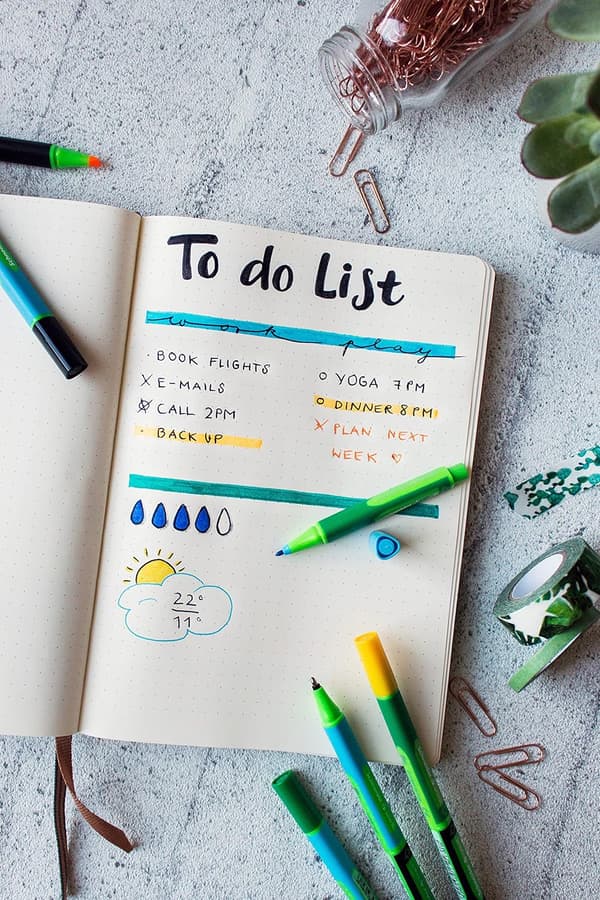 To do List
work play
· BOOK FLIGHTS
X E-MAILS
X CALL 2PM
· BACK UP
O YOGA 7PM
O DINNER 8PM
X PLAN NEXT
WEEK ♡
22°
11°